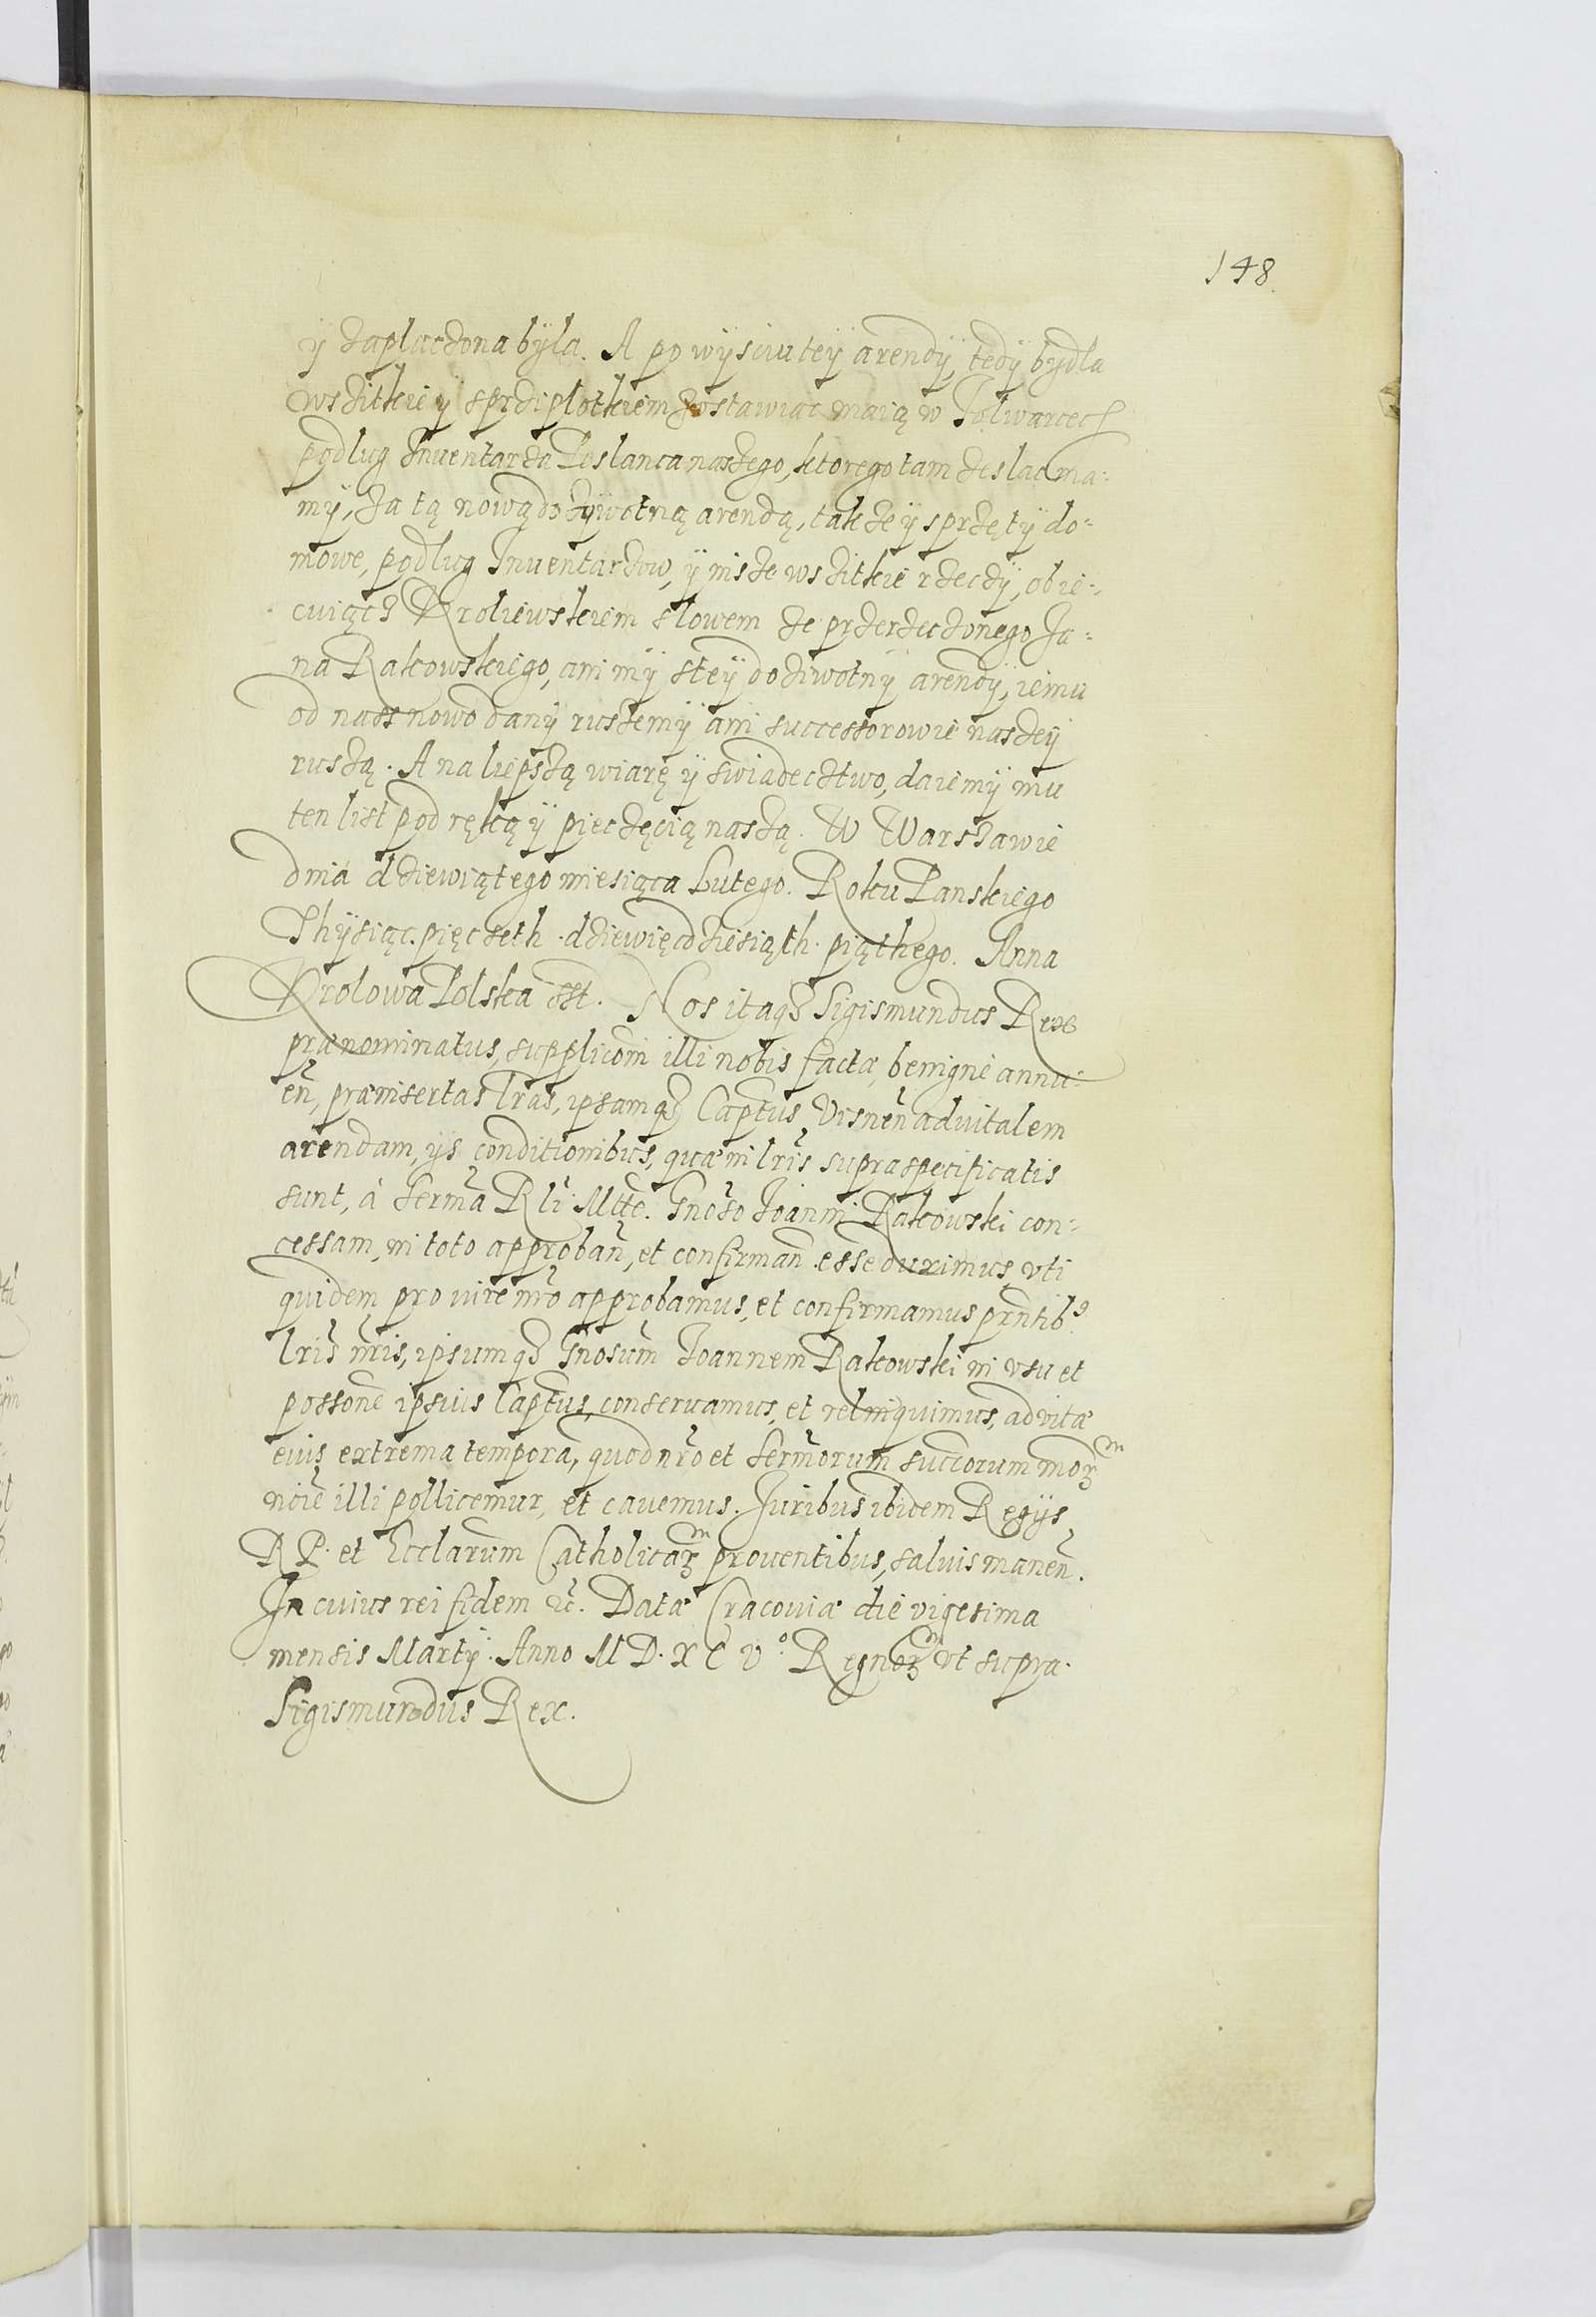 148.
ÿ zapłaczona była. A po wÿsciu teÿ arendÿ, tedÿ bydła
wszitkie ÿ sprziplotkiem zostawiac maią w Folwarcech
podlug Inuentarza Poslanca naszego, ktorego tam zeslac ma-
mÿ, za tą nową dożÿwotną arendą, takze ÿ sprzętÿ do-
mowe, podlug Inuentarzow, ÿ insze wszitkie rzeczÿ, obie-
cuiącz Kroliewskiem slowem ze przerzeczonego Ja-
na Rakowskiego, ani mÿ steÿ doziwotnÿ arendÿ, iemu
od nass nowo danÿ ruszemÿ ani successorowie naszeÿ
ruszą. A na liepszą wiarę ÿ swiadecztwo, daiemÿ mu
ten list pod ręką ÿ pieczęcią naszą. W Warszawie
dnia dziewiątego miesiąca Lutego. Roku Panskiego
Thÿsiąc pięcseth dziewięcdziesiąth piąthego. Anna
Krolowa Polska sst. Nos itaq₃ Sigismundus Rex
prænominatus, supplicõni illi nobis factæ, benigne annu-
eñ, præinsertas lras, ipsamq₃ Captus Visneñ aduitalem
arendam, ijs conditionibus, quæ in lris supraspecificatis
sunt, à Serma Rli Mtte. Gnoso Joanni Rakowski con-
cessam, in toto approbañ, et confirmañ esse duximus, vti
quidem pro iure nro approbamus, et confirmamus prntib9
lris nris, ipsumq₃ Gnosum Joannem Rakowski in vsu et
possone ipsius Captus, conseruamus, et relinquimus, ad vitæ
eius extrema tempora, quod nro et Sermorum succorum nrorꝫ
noie illi pollicemur, et cauemus. Juribus ibidem Regijs
RP. et Ecclarum Catholicarꝫ prouentibus, saluis maneñ.
In cuius rei fidem &c. Datæ Cracouiæ die vigesima
mensis Martÿ. Anno M D. X C V°. Regnorꝫ vt supra.
Sigismundus Rex.